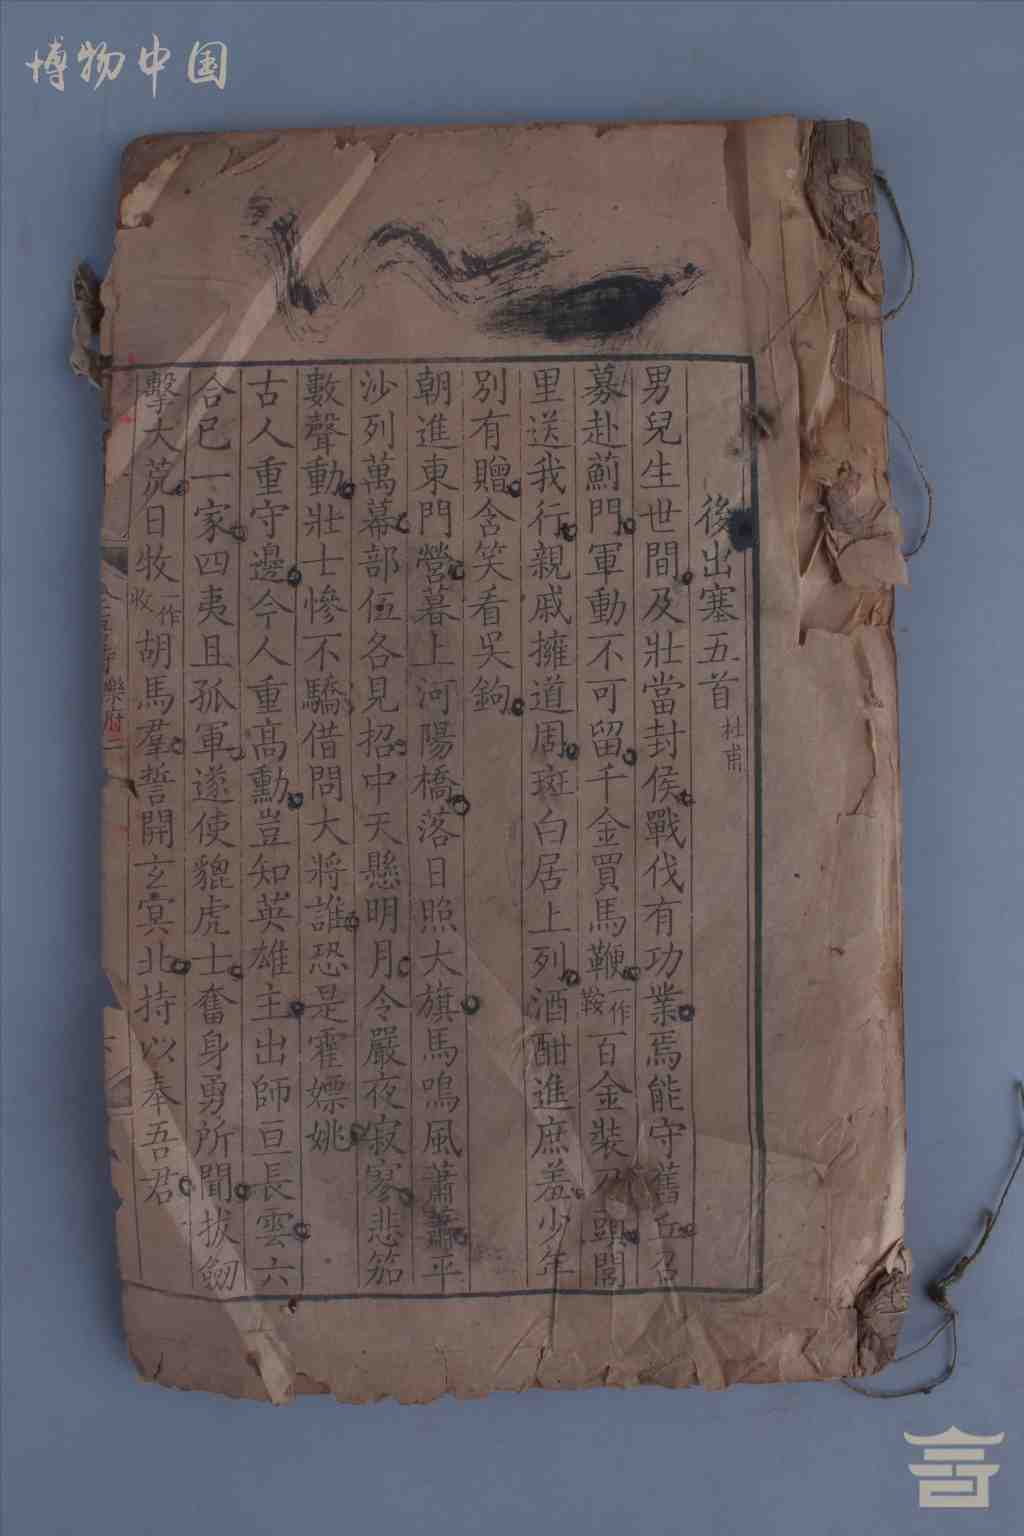 博物中国
後出塞五首 杜甫
男兒生世間及壯當封侯戰伐有功業焉能守舊丘召
募赴薊門軍動不可留千金買馬鞭一作鞍百金裝刀頭閭
里送我行親戚擁道周斑白居上列酒酣進庶羞少年
別有贈含笑看吳鉤
朝進東門營暮上河陽橋落日照大旗馬鳴風蕭蕭平
沙列萬幕部伍各見招中天懸明月令嚴夜寂寥悲笳
數聲動壯士慘不驕借問大將誰恐是霍嫖姚
古人重守邊今人重高勳豈知英雄主出師亘長雲六
合已一家四夷且孤軍遂使貔虎士奮身勇所聞拔劒
擊大荒日牧一作收胡馬羣誓開玄冥北持以奉吾君
樂府